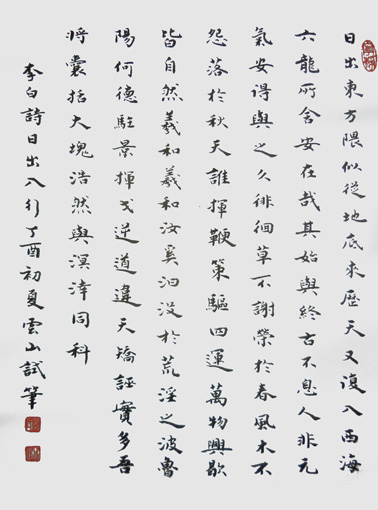 日出東方隈似從地底來歷天又復入西海
六龍所舍安在哉其始與終古不息人非元
氣安得與之久徘徊草不謝榮於春風木不
怨落於秋天誰揮鞭策驅四運萬物興歇
皆自然羲和羲和汝奚汩沒於荒淫之波魯
陽何德駐景揮戈逆道違天矯誣實多吾
將囊括大塊浩然與溟涬同科
李白詩日出入行丁酉初夏雲山試筆